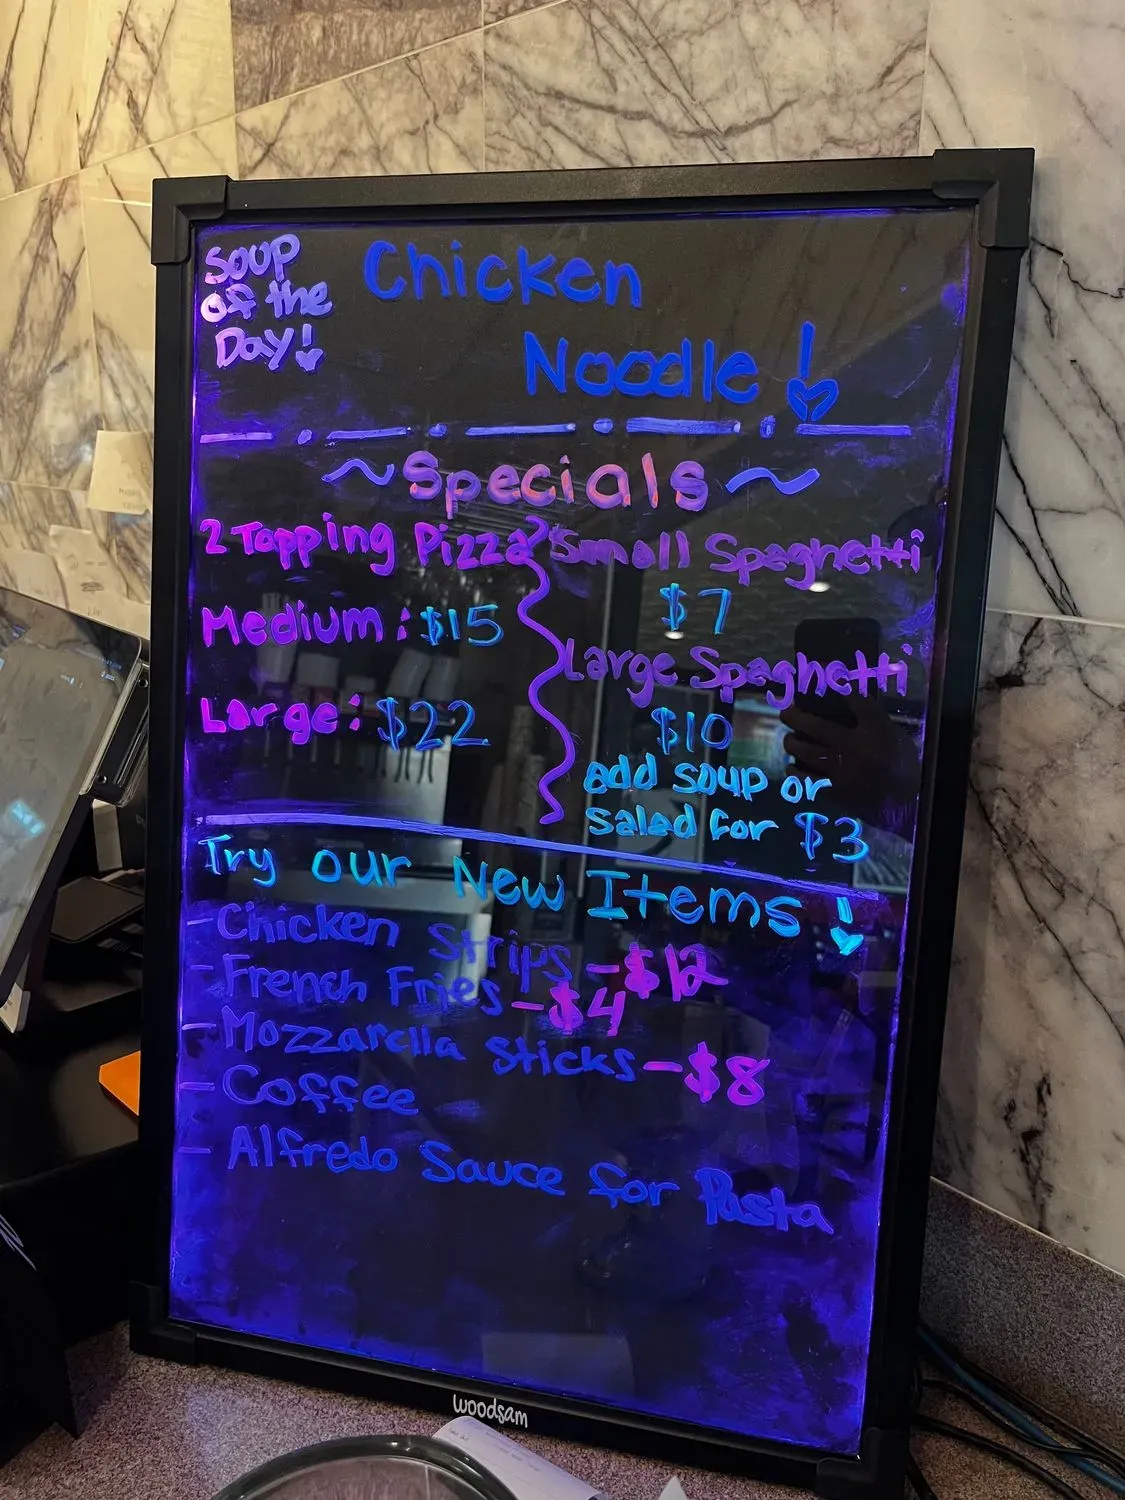 Soup
of the
Day!
Chicken
Noodle!
~Specials~
2 Topping Pizza
Medium: $15
Large: $22
Small Spaghetti
$7
Large Spaghetti
$10
add soup or
salad for $3
Try our New Items!
- Chicken Strips - $12
- French Fries - $4
- Mozzarella Sticks - $8
- Coffee
- Alfredo Sauce for Pasta
woodsam